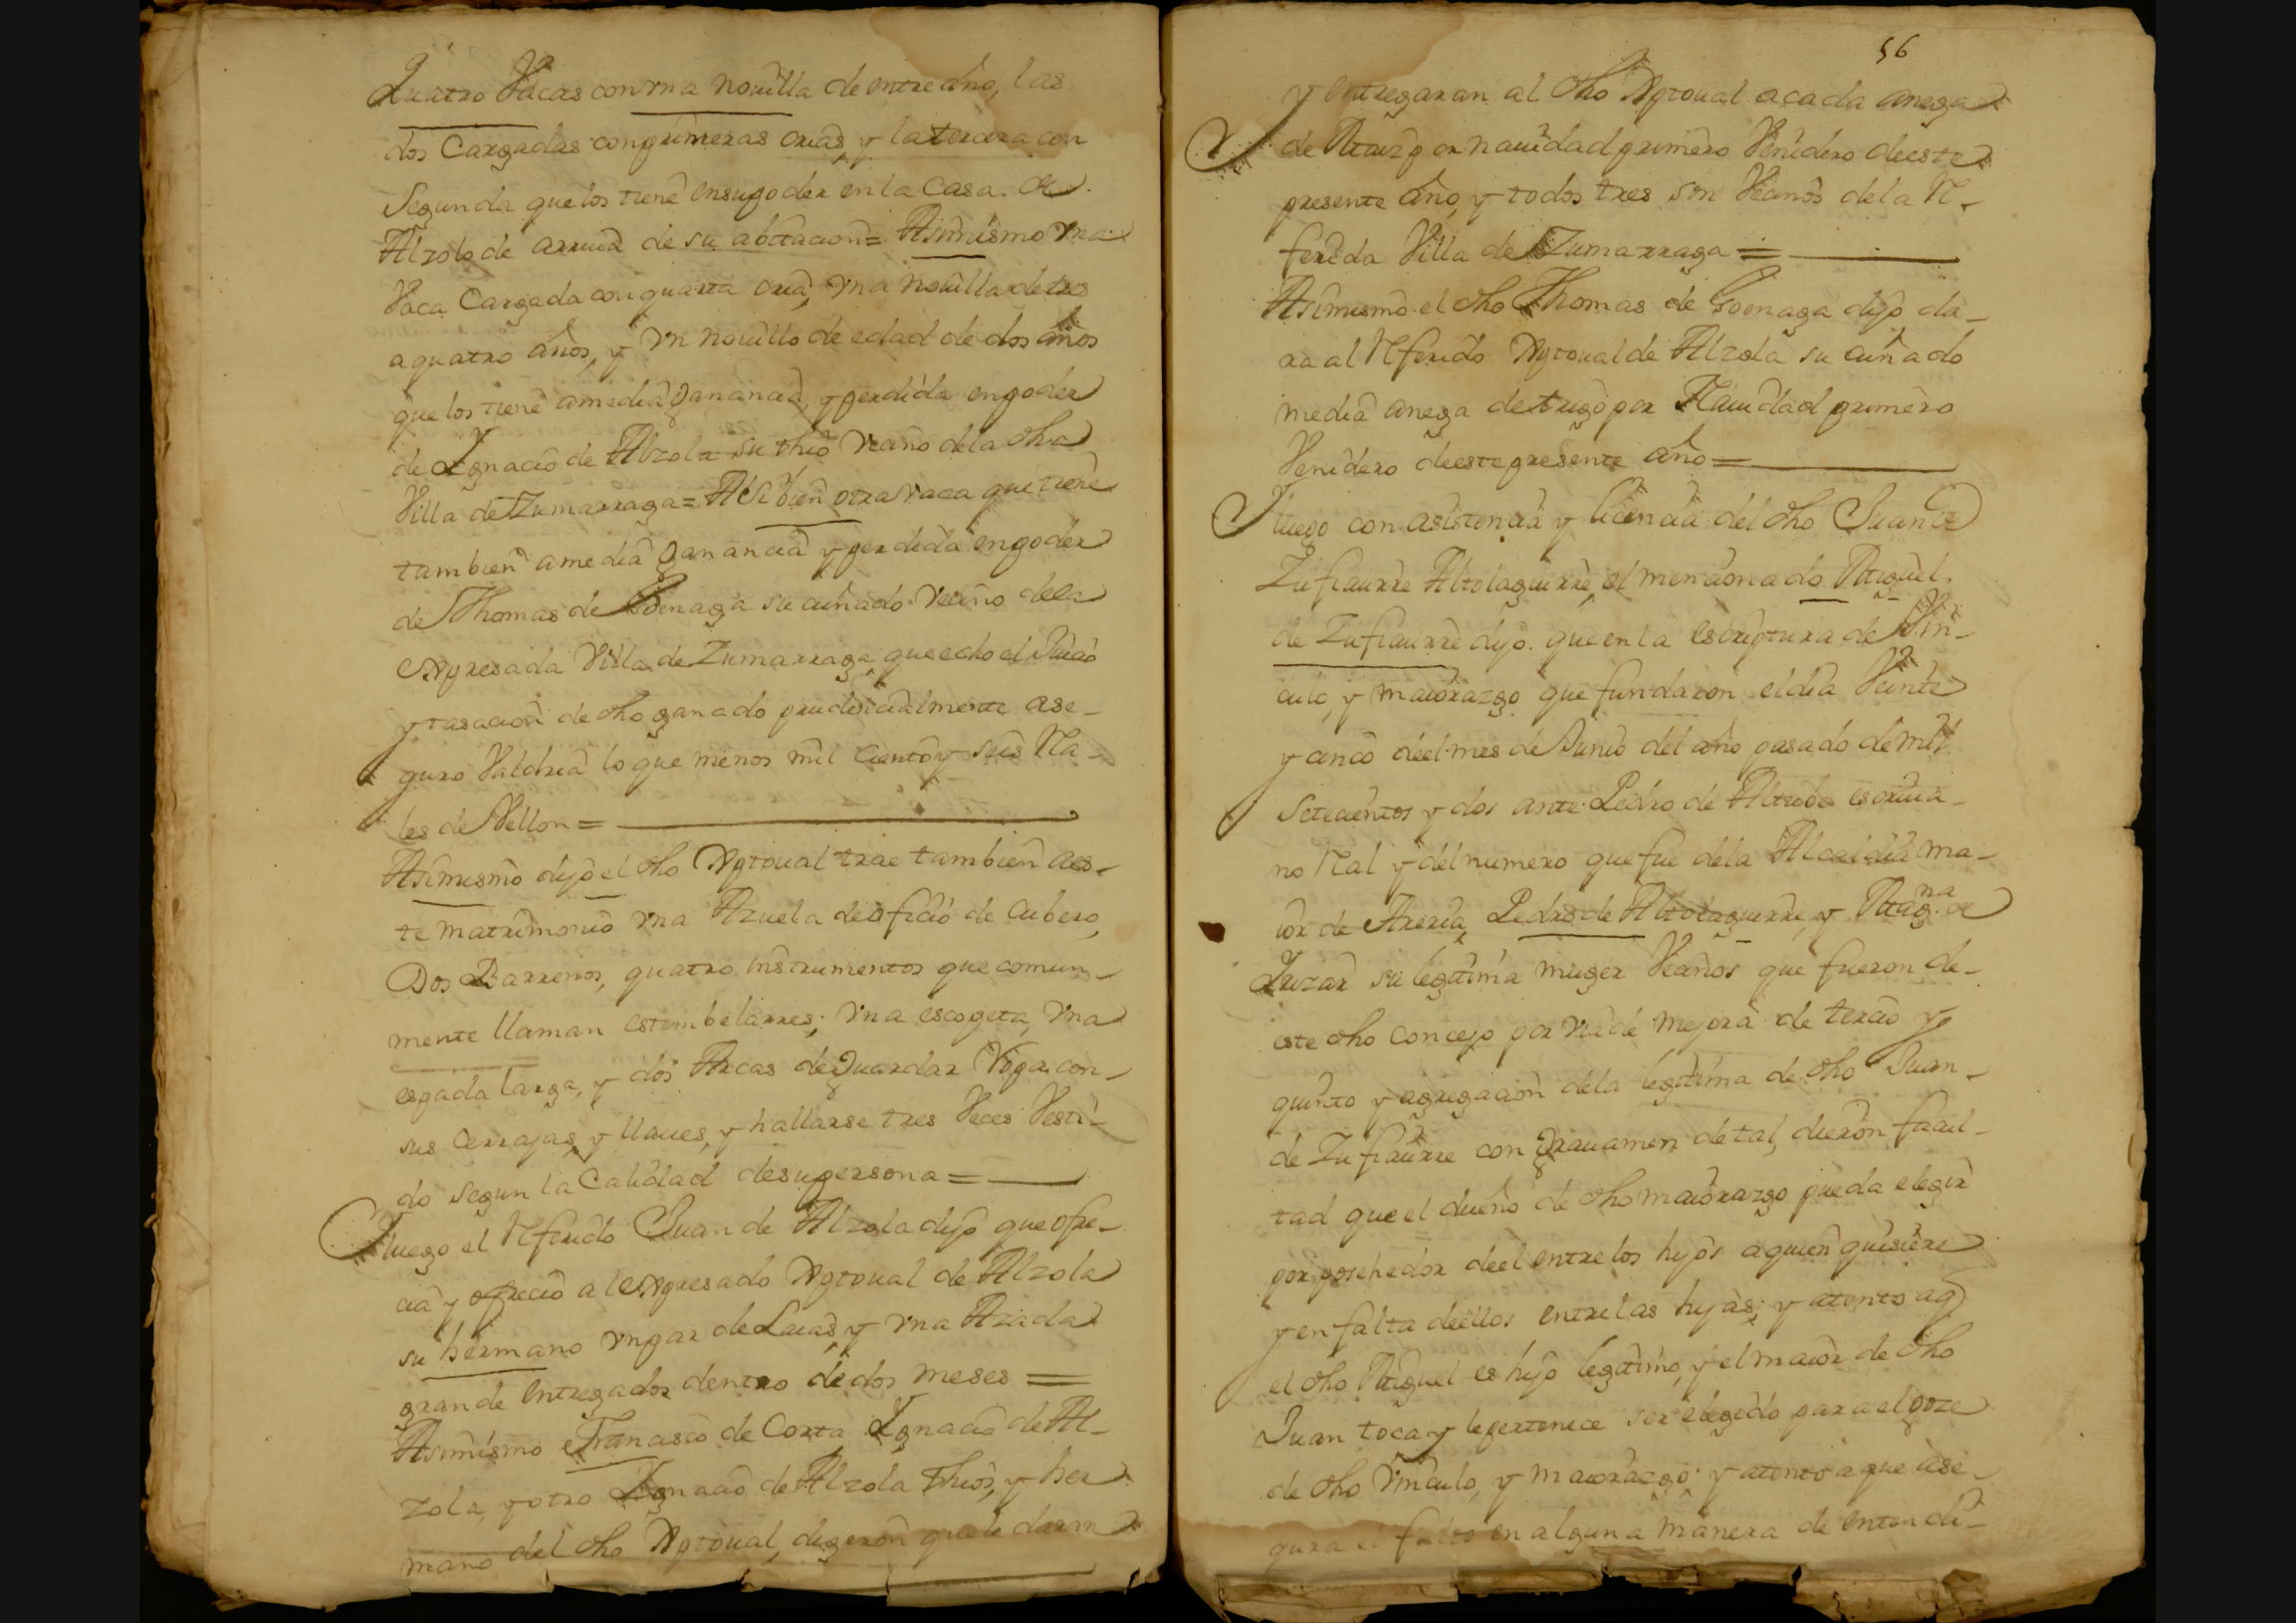 Quatro Vacas con vna nouilla de entre año, las
dos Cargadas con primeras crias, y la tercera con
Segunda que los tiene en su poder en la Casa de
Alzola de arriua de su abitacion = Asimismo vna
Vaca Cargada con quarta cria, vna nouilla de tres
a quatro años, y vn nouillo de edad de dos años
que los tiene a media ganancia, y perdida en poder
de Ignacio de Alzola su thio vecino de la dha
Villa de Zumarraga = Asi bien otra vaca que tiene
tambien a media ganancia y perdida en poder
de Thomas de Goenaga su cuñado vecino de la
expresada Villa de Zumarraga, que echo el Juicio
y tasacion de dho ganado prudencialmente ase-
guro Valdria lo que menos mil ciento y seis Rea-
les de Vellon =
Asimismo dijo el dho Xptoual trae tambien a es-
te matrimonio vna Azuela de oficio de Cubero,
Dos Barrenos, quatro instrumentos que comun-
mente llaman estembelarres; vna escopeta, vna
espada larga, y dos Arcas de guardar Ropa con
sus Cerrajas, y llaues, y hallarse tres Veces Vesti-
do segun la Calidad de su persona =
Y luego el Referido Juan de Alzola dijo que ofre-
cia y ofrecio al expresado Xptoual de Alzola
su hermano vn par de Laias, y vna Azada
grande entregados dentro de dos meses =
Asimismo Francisco de Corta Ignacio de Al-
zola, y otro Ignacio de Alzola thios, y her
mano del dho Xptoual, digeron que le daran
56
y entregaran al dho Xptoual a cada anega
de Maiz por nauidad primero Venidero de este
presente año, y todos tres son Vecinos de la Re-
ferida Villa de Zumarraga =
Asimismo el dho Thomas de Goenaga dijo da-
ra al Referido Xptoual de Alzola su cuñado
media anega de trigo por Nauidad primero
Venidero de este presente año =
Y luego con asistencia y licencia del dho Juan de
Zufiaurre Altolaguirre, el mencionado Miguel
de Zufiaurre dijo que en la escriptura de Vin-
culo, y maiorazgo que fundaron el dia Veinte
y cinco de el mes de Junio del año pasado de mil
Setecientos y dos ante Pedro de escriua-
no Real y del numero que fue de la Alcaldia ma-
ior de Areria, Pedro de Altolaguirre, y Mag.na de
su legitima muger Vecinos que fueron de
este dho Concejo por via de mejora de tercio y
quinto y agregacion de la legitima de dho Juan
de Zufiaurre con grauamen de tal, dieron facul-
tad que el dueño de dho maiorazgo pueda elegir
por posehedor de el entre los hijos a quien quisiere
y en falta de ellos entre las hijas; y atento a q
el dho Miguel es hijo legitimo, y el maior de dho
Juan toca y le pertenece ser elegido para el goze
de dho Vinculo, y maiorazgo; y atento a que ase-
gura el falto en alguna manera de entendi-